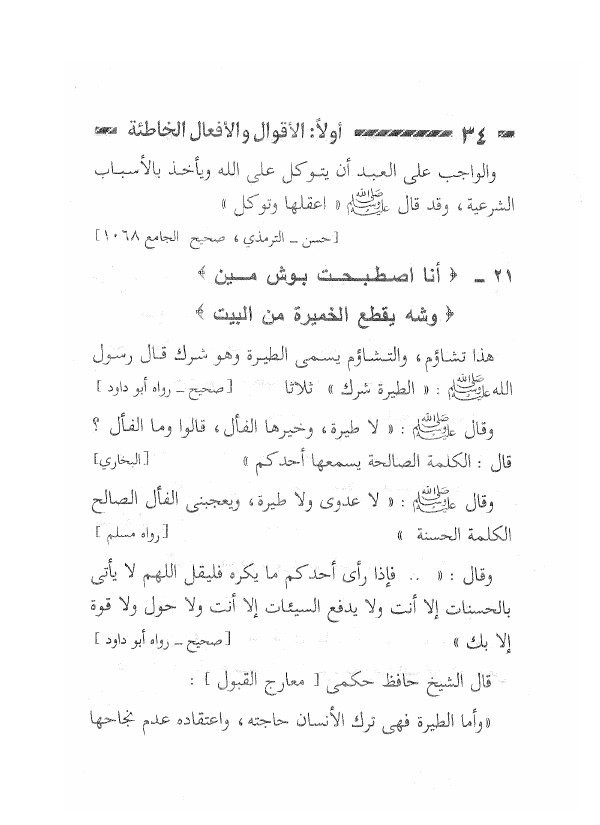 ٣٤ أولاً: الأقوال والأفعال الخاطئة
والواجب على العبد أن يتوكل على الله ويأخذ بالأسباب
الشرعية ، وقد قال ﷺ « اعقلها وتوكل »
[حسن ــ الترمذي ، صحيح الجامع ١٠٦٨]
٢١ ــ ﴿ أنا اصطبحت بوش مين ﴾
﴿ وشه يقطع الخميرة من البيت ﴾
هذا تشاؤم ، والتشاؤم يسمى الطيرة وهو شرك قال رسول
الله ﷺ : « الطيرة شرك » ثلاثا [صحيح ــ رواه أبو داود ]
وقال ﷺ : « لا طيرة ، وخيرها الفأل ، قالوا وما الفأل ؟
قال : الكلمة الصالحة يسمعها أحدكم » [البخاري]
وقال ﷺ : « لا عدوى ولا طيرة ، ويعجبنى الفأل الصالح
الكلمة الحسنة » [رواه مسلم ]
وقال : « .. فإذا رأى أحدكم ما يكره فليقل اللهم لا يأتى
بالحسنات إلا أنت ولا يدفع السيئات إلا أنت ولا حول ولا قوة
إلا بك » [صحيح ــ رواه أبو داود ]
قال الشيخ حافظ حكمى [ معارج القبول ] :
«وأما الطيرة فهى ترك الأنسان حاجته ، واعتقاده عدم نجاحها